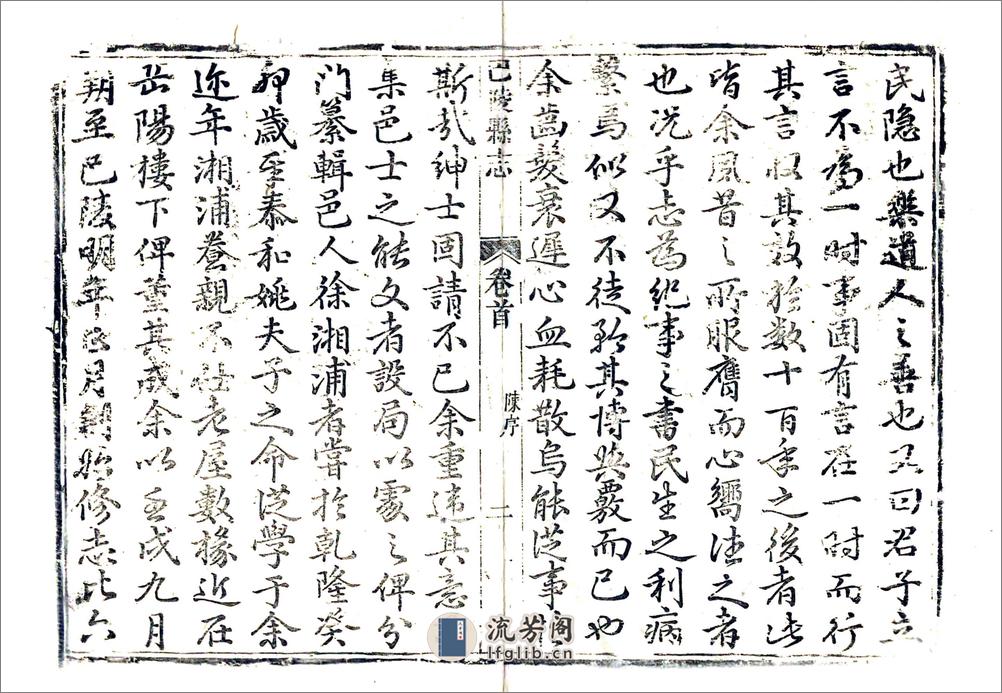 民隱也樂道人之善也又曰君子立
言不為一時事固有言在一時而行
其言收其效於數十百年之後者此
皆余夙昔之所服膺而心嚮往之者
也況乎志為紀事之書民生之利病
繫焉似又不徒矜其博與覈而已也
余齒髮衰遲心血耗散烏能從事
巴陵縣志
卷首
陳序
二
斯哉紳士固請不已余重違其意
集邑士之能文者設局以處之俾分
門纂輯邑人徐湘浦者嘗於乾隆癸
卯歲至泰和姚夫子之命從學于余
近年湘浦養親不仕老屋數椽近在
岳陽樓下俾董其成余以壬戌九月
朔至巴陵明年四月朔始修志比六
流芳阁
lfglib.cn